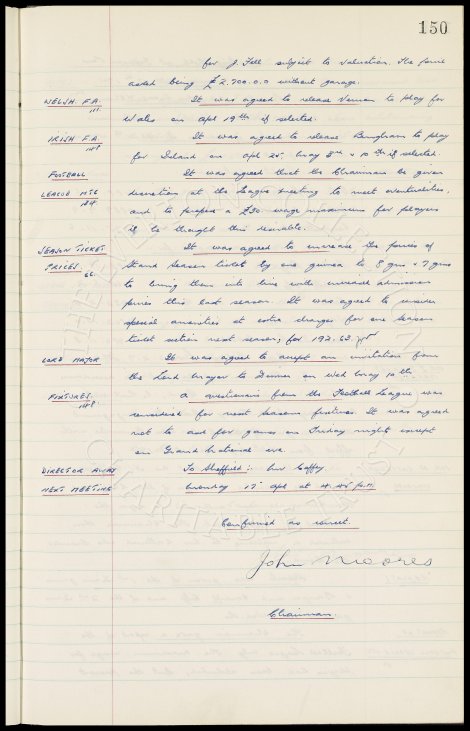 150
for J. Fell subject to valuation. The price
asked being £2.700.0.0 without garage.
WELSH. F.A. It was agreed to release Vernon to play for
111.
Wales on Apl 19th if selected.
IRISH F.A. It was agreed to release Bingham to play
148
for Ireland on Apl 25. May 3rd & 10th if selected.
FOOTBALL It was agreed that the Chairman be given
LEAGUE MTG discretion at the League meeting to meet eventualities.
124
and to propose a £30 wage maximum for players
if he thought this desirable.
SEASON TICKET It was agreed to increase the prices of
PRICES. Stand Season tickets by one guinea to 8 gns & 7 gns
66.
to bring them into line with increased admission
prices this last season. It was agreed to consider
special amenities at extra charges for one season
ticket section next season, for 1962.63
LORD MAJOR It was agreed to accept an invitation from
the Lord Mayor to Dinner on Wed May 10th
FIXTURES. A questionaire from the Football League was
148.
considered for next seasons fixtures. It was agreed
not to ask for games on Friday nights except
on Grand National eve.
DIRECTOR AWAY To Sheffield: Mr Coffey
NEXT MEETING Monday 17 Apl at 4.45 p.m.
Confirmed as correct.
John Moores
Chairman.
THE EVERTON COLLECTION
CHARITABLE TRUST